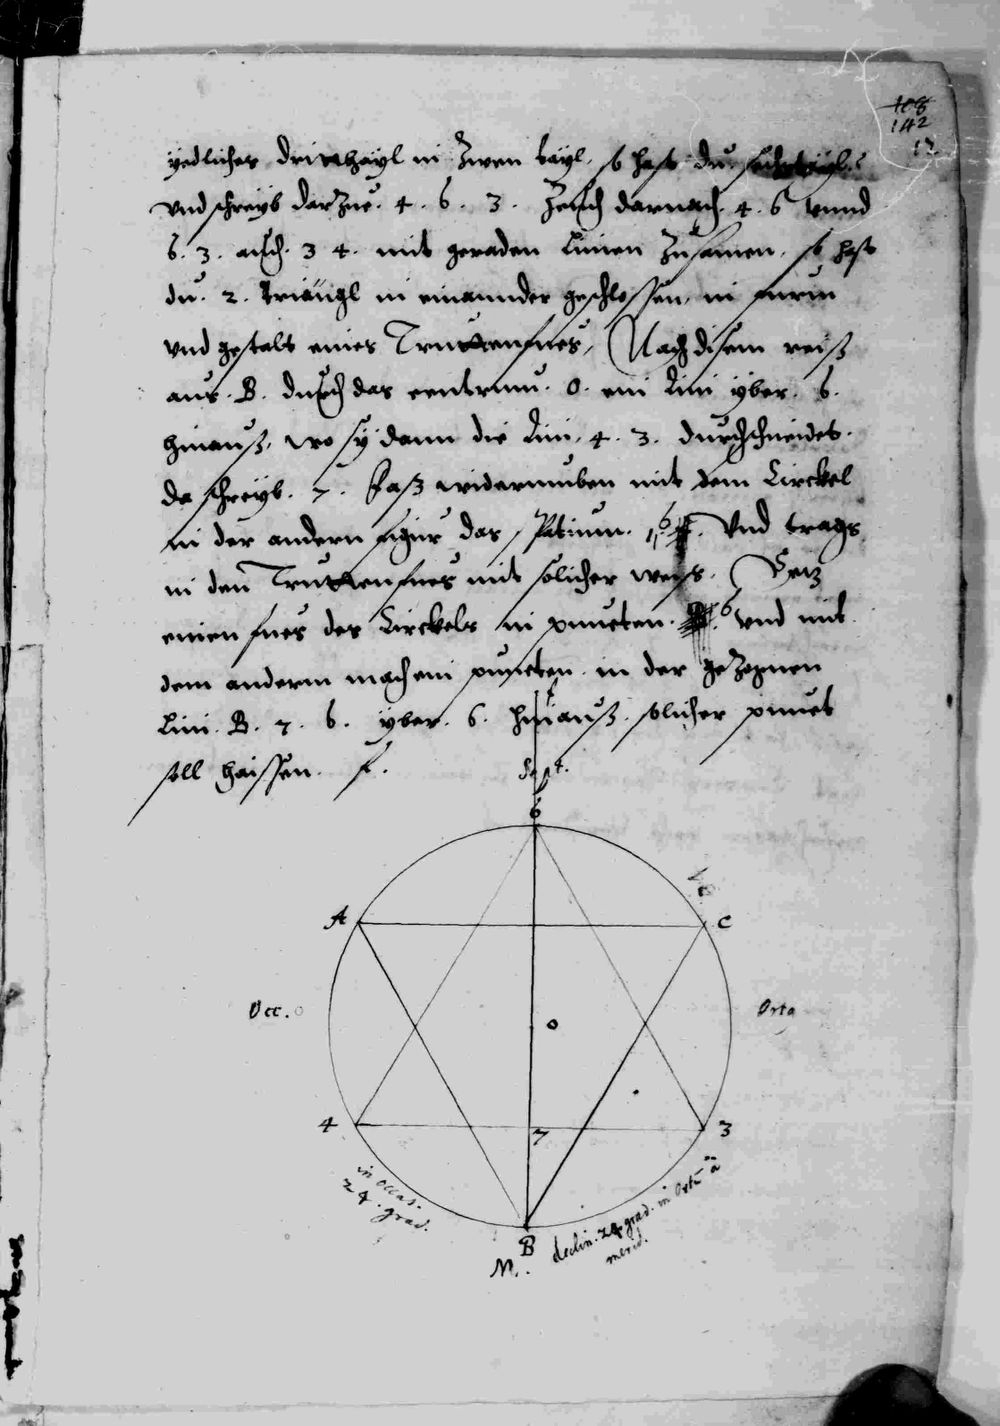 108
142
12
yedliches dritthayl in Zwen tayl, so hast du sechstayl.
vnd schreyb darzue. 4. 6. 3. Zeuch darnach. 4. 6 vnnd
6. 3. auch. 3 4. mit geraden Linien Zusamen, so hast
du. 2. Triangl in einannder geschlossen, in furm
vnd gestalt eines Truttenfues, Nach disem reiß
aus. B. durch das centrum. O. ein Lini yber. 6.
hinauß, wo sy dann die Lini. 4. 3. durchschneidet.
da schreyb. 7. Fass widerumben mit dem Circkel
in der andern figur das Spatium. 6. Vnd trags
in den Truttenfues mit solicher weiß. Setz
einen fues des Circkels in puncten. 6 vnd mit
dem anderm mach ein puncten in der gezognen
Lini. B. 7. 6. yber. 6. hinauß. solicher punct
soll haissen. f.
Sept.
6
A
C
Occ.
O
Orta
4
7
3
in occas.
24. grad.
declin. 24 grad. in Ortu à
merid.
B
M.